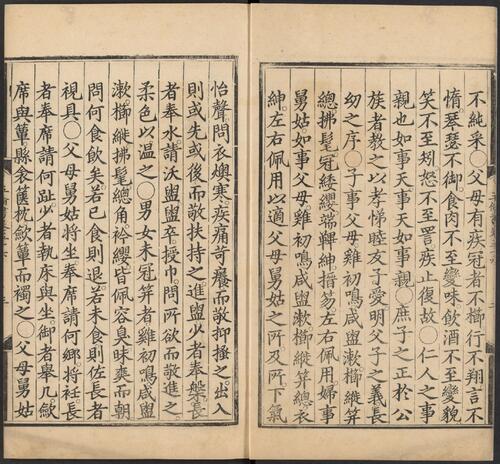 不純采〇父母有疾冠者不櫛行不翔言不
惰琴瑟不御。食肉不至變味飲酒不至變貌
笑不至矧怒不至詈。疾止復故〇仁人之事
親也如事天事天如事親〇庶子之正於公
族者教之以孝悌睦友子愛明父子之義長
幼之序〇子事父母雞初鳴咸盥漱櫛縰笄
總拂髦冠緌纓。端韠紳搢笏左右佩用婦事
舅姑。如事父母雞初鳴咸盥漱櫛縰笄總衣
紳。左右佩用以適父母舅姑之所。及所下氣
怡聲。問衣燠寒。疾痛苛癢而敬抑搔之。出入
則或先或後而敬扶持之進盥少者奉槃長
者奉水。請沃盥。盥卒授巾。問所欲而敬進之
柔色以温之〇男女未冠笄者雞初鳴咸盥
漱櫛縰拂髦總角衿纓皆佩容臭昧爽而朝
問何食飲矣若已食則退。若未食則佐長者
視具〇父母舅姑將坐奉席請何鄉將衽長
者奉席請何趾少者執床與坐御者舉几歛
席與簟縣衾篋枕歛簟而襡之〇父母舅姑